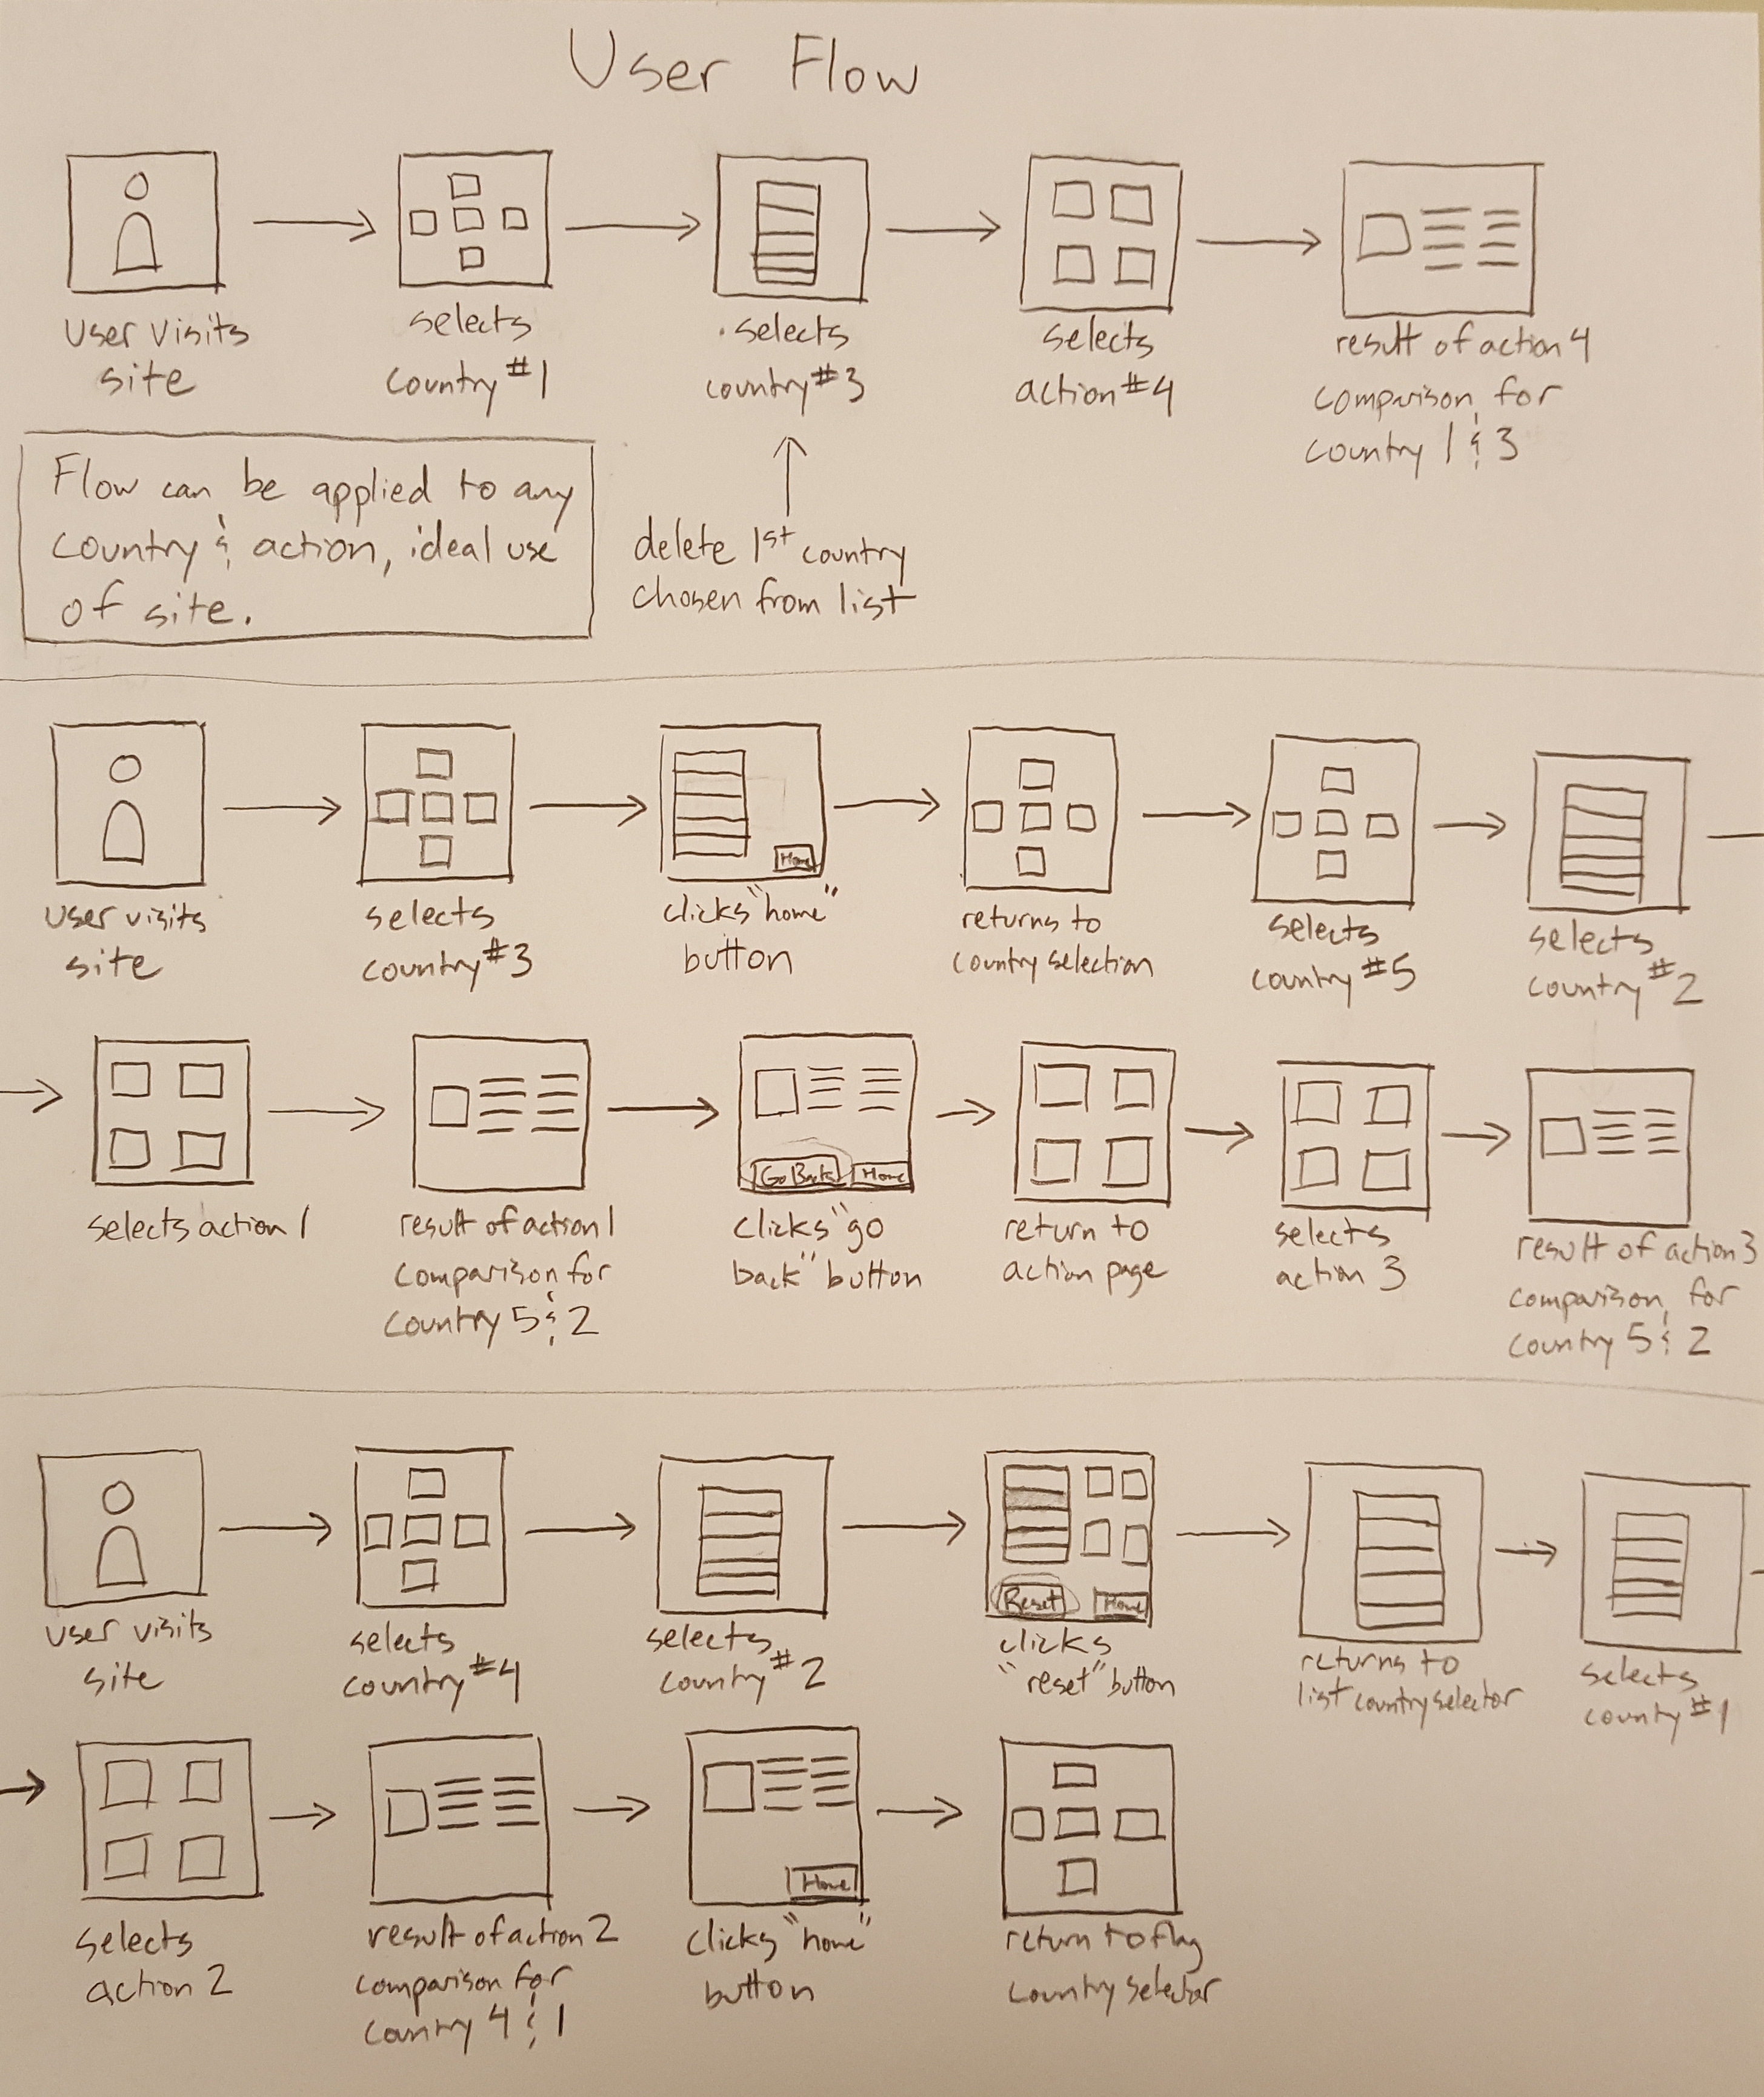 User Flow
User visits
site
selects
country #1
selects
country #3
selects
action #4
result of action 4
comparison for
country 1 & 3
Flow can be applied to any
country & action, ideal use
of site.
delete 1st country
chosen from list
user visits
site
selects
country #3
Home
clicks "home"
button
returns to
country selection
selects
country #5
selects
country #2
selects action 1
result of action 1
comparison for
country 5 & 2
Go Back
Home
clicks "go
back" button
return to
action page
selects
action 3
result of action 3
comparison for
country 5 & 2
user visits
site
selects
country #4
selects
country #2
Reset
Home
clicks
"reset" button
returns to
list country selector
selects
county #1
selects
action 2
result of action 2
comparison for
country 4 & 1
Home
clicks "home"
button
return to flag
country selector